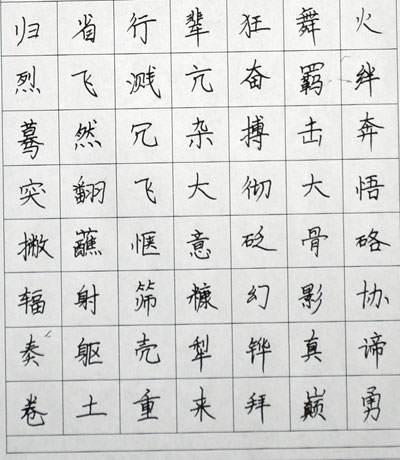 归省行辈狂舞火
烈飞溅亢奋羁绊
蓦然冗杂搏击奔
突翻飞大彻大悟
撇蘸惬意砭骨硌
辐射筛糠幻影协
奏躯壳犁铧真谛
卷土重来拜巅勇